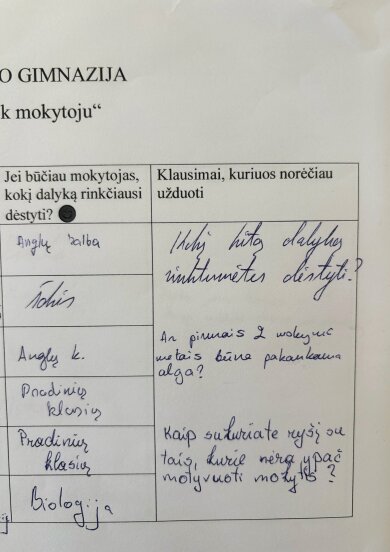 O GIMNAZIJA
k mokytoju“
Jei būčiau mokytojas,
kokį dalyką rinkčiausi
dėstyti?
Klausimai, kuriuos norėčiau
užduoti
Anglų kalba
kitą dalyką
rinktumėtės dėstyti?
Anglų k.
Ar pirmais 2
metais būna pakankama
alga?
Pradinių
klasių
Pradinių
klasių
Kaip sukuriate ryšį su
tais, kurie nėra ypač
motyvuoti mokytis?
Biologija